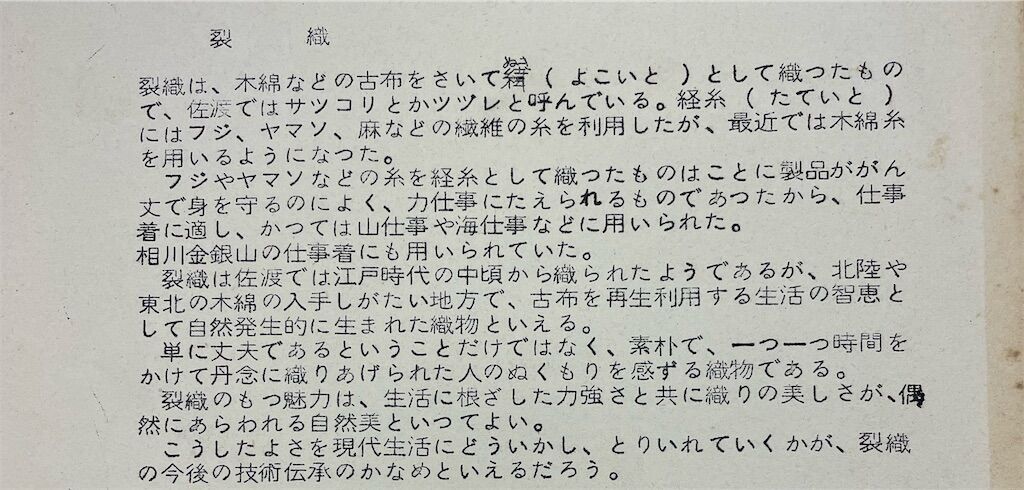 裂　織
裂織は、木綿などの古布をさいて緯（よこいと）として織つたもの
で、佐渡ではサツコリとかツヅレと呼んでいる。経糸（たていと）
にはフジ、ヤマソ、麻などの繊維の糸を利用したが、最近では木綿糸
を用いるようになつた。
フジやヤマソなどの糸を経糸として織つたものはことに製品ががん
丈で身を守るのによく、力仕事にたえられるものであつたから、仕事
着に適し、かつては山仕事や海仕事などに用いられた。
相川金銀山の仕事着にも用いられていた。
裂織は佐渡では江戸時代の中頃から織られたようであるが、北陸や
東北の木綿の入手しがたい地方で、古布を再生利用する生活の智恵と
して自然発生的に生まれた織物といえる。
単に丈夫であるということだけではなく、素朴で、一つ一つ時間を
かけて丹念に織りあげられた人のぬくもりを感ずる織物である。
裂織のもつ魅力は、生活に根ざした力強さと共に織りの美しさが、偶
然にあらわれる自然美といつてよい。
こうしたよさを現代生活にどういかし、とりいれていくかが、裂織
の今後の技術伝承のかなめといえるだろう。